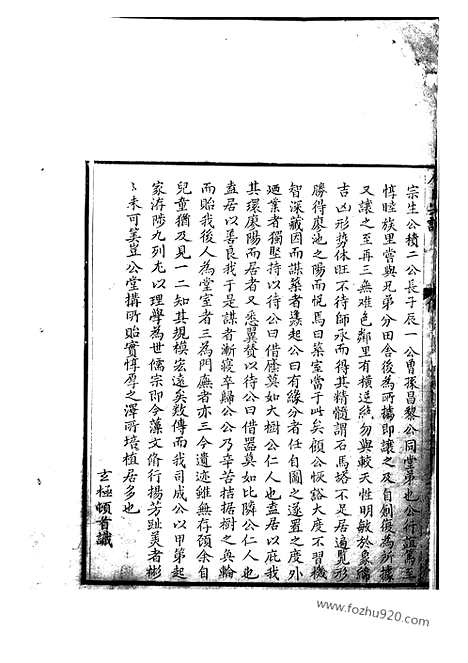 宗生公積二公長子辰一公曾孫昌黎公同堂弟也公行誼篤至
惇睦族里嘗與兄弟分田舍後為所攘即讓之及自創復為所攘
又讓之至再三無難色鄰里有橫逆絶勿與較天性明敏於象緯
吉凶形勢休旺不待師承而得其精髓謂石馬塔不足居遍覓形
勝得廖池之陽而悅焉曰築室當于此矣顧公恢谿大度不習機
智深藏因而謀築者遂起公曰有緣分者任自圖之遂置之度外
廼業者獨堅持以待公曰借蔭莫如大樹公仁人也盍居以庇我
其環廖陽而居者又悉翼贊以待公曰借器莫如比隣公仁人也
盍居以善良我于是謀者漸寢卒歸公公乃辛苦拮据樹之奐輪
而貽我後人為堂室者三為門廡者亦三今遺迹雖無存頎余自
兒童猶及見一二知其規模宏遠矣数傳而我司成公以甲第起
家洊陟九列尤以理學為世儒宗即今藻文脩行揚芳趾美者彬
彬未可羙豈公堂搆所貽實惇厚之澤所培植居多也
玄極頓首識
www.fozhu920.com